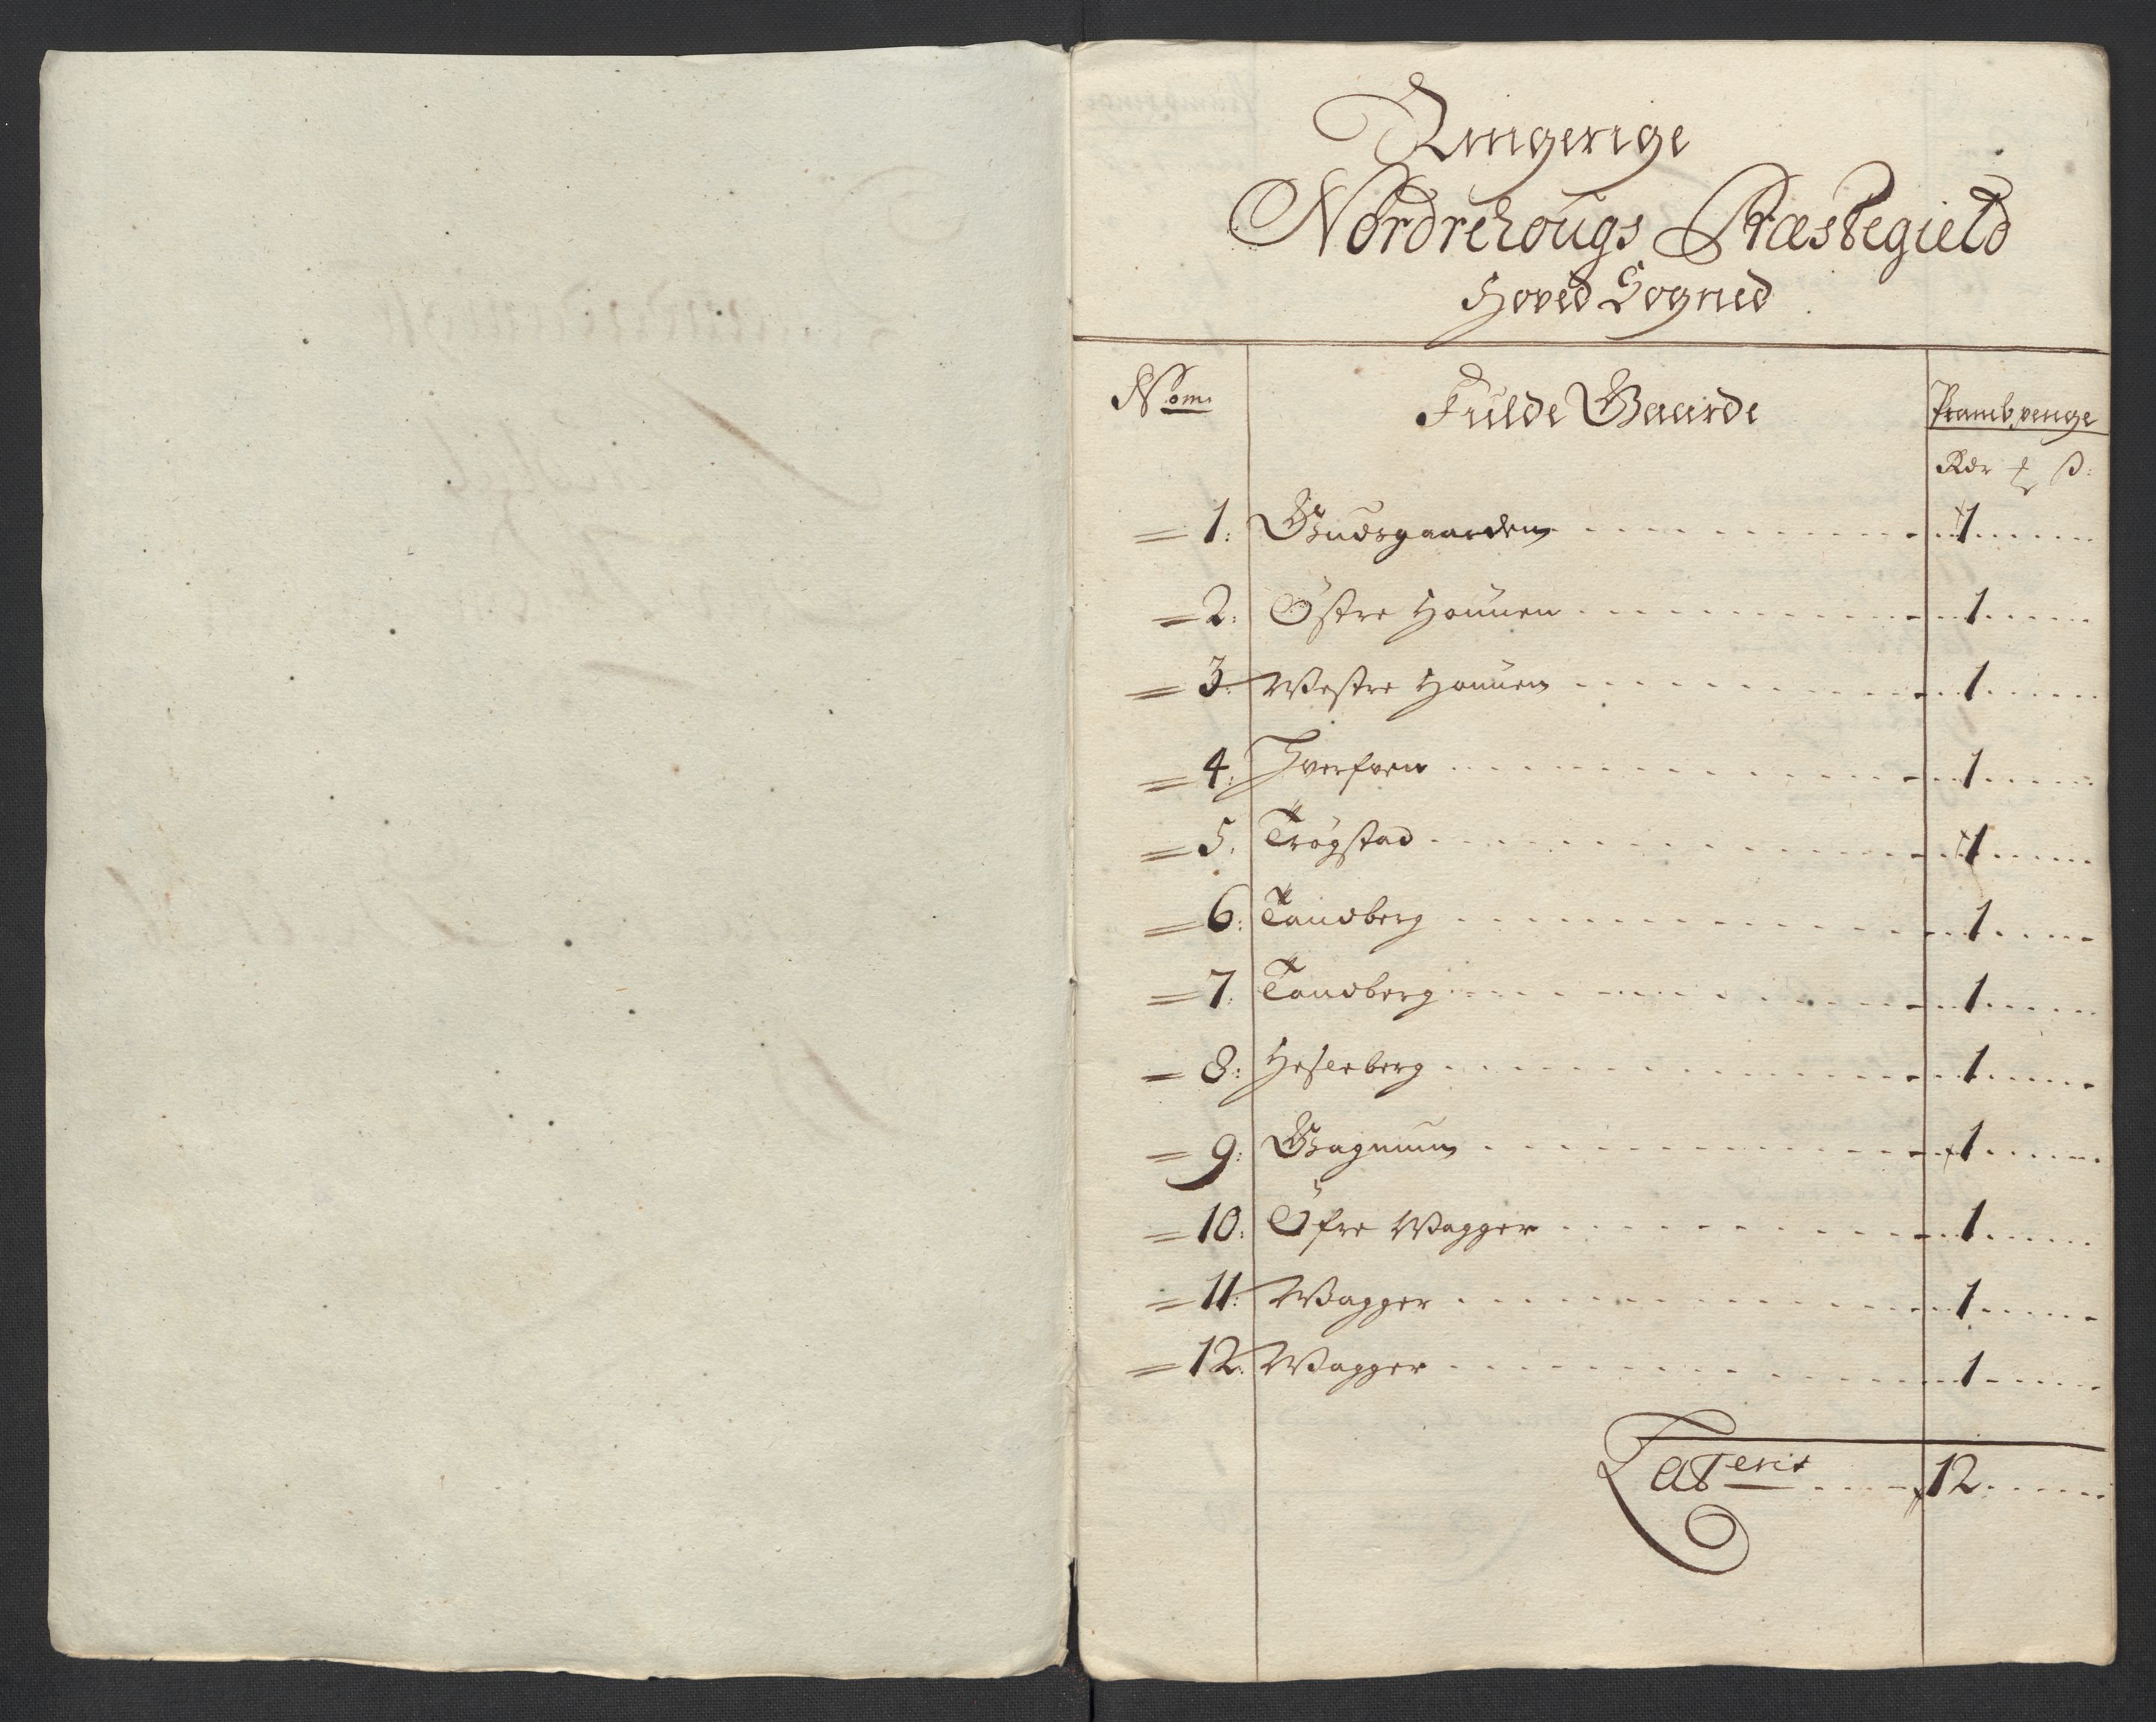 Ringerige
Nordrehougs Præstegield
Hoved Sogned
Nom. Fulde Gaarde Prambpenge
Rdr ß:
1: Gudsgaarden 1
2: Östre Hounen 1
3: Westre Hounen 1
4: Hverfven 1
5. Trögstad 1
6: Tandberg 1
7: Tandberg 1
8: Heselberg 1
9: Gagnum 1
10: Öfre Wagger 1
11: Wagger 1
12: Wagger 1
Laterit 12